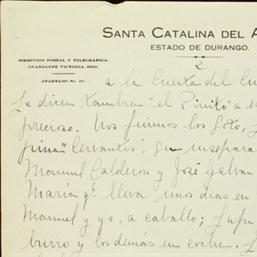 SANTA CATALINA DEL A
ESTADO DE DURANGO.
DIRECCION POSTAL Y TELEGRAFICA:
GUADALUPE VICTORIA, DGO.
APARTADO No.
2
a la Cuesta del Cu
Le dicen tambien "el Pinito" a e
precioso. Nos fuimos los Soto,
pina" Cervantes, su insepara
Manuel Calderon y José Galvan
Maria qe. lleva unos dias en
Manuel y yo, a caballo; Lupe
burro y los demás en coche.